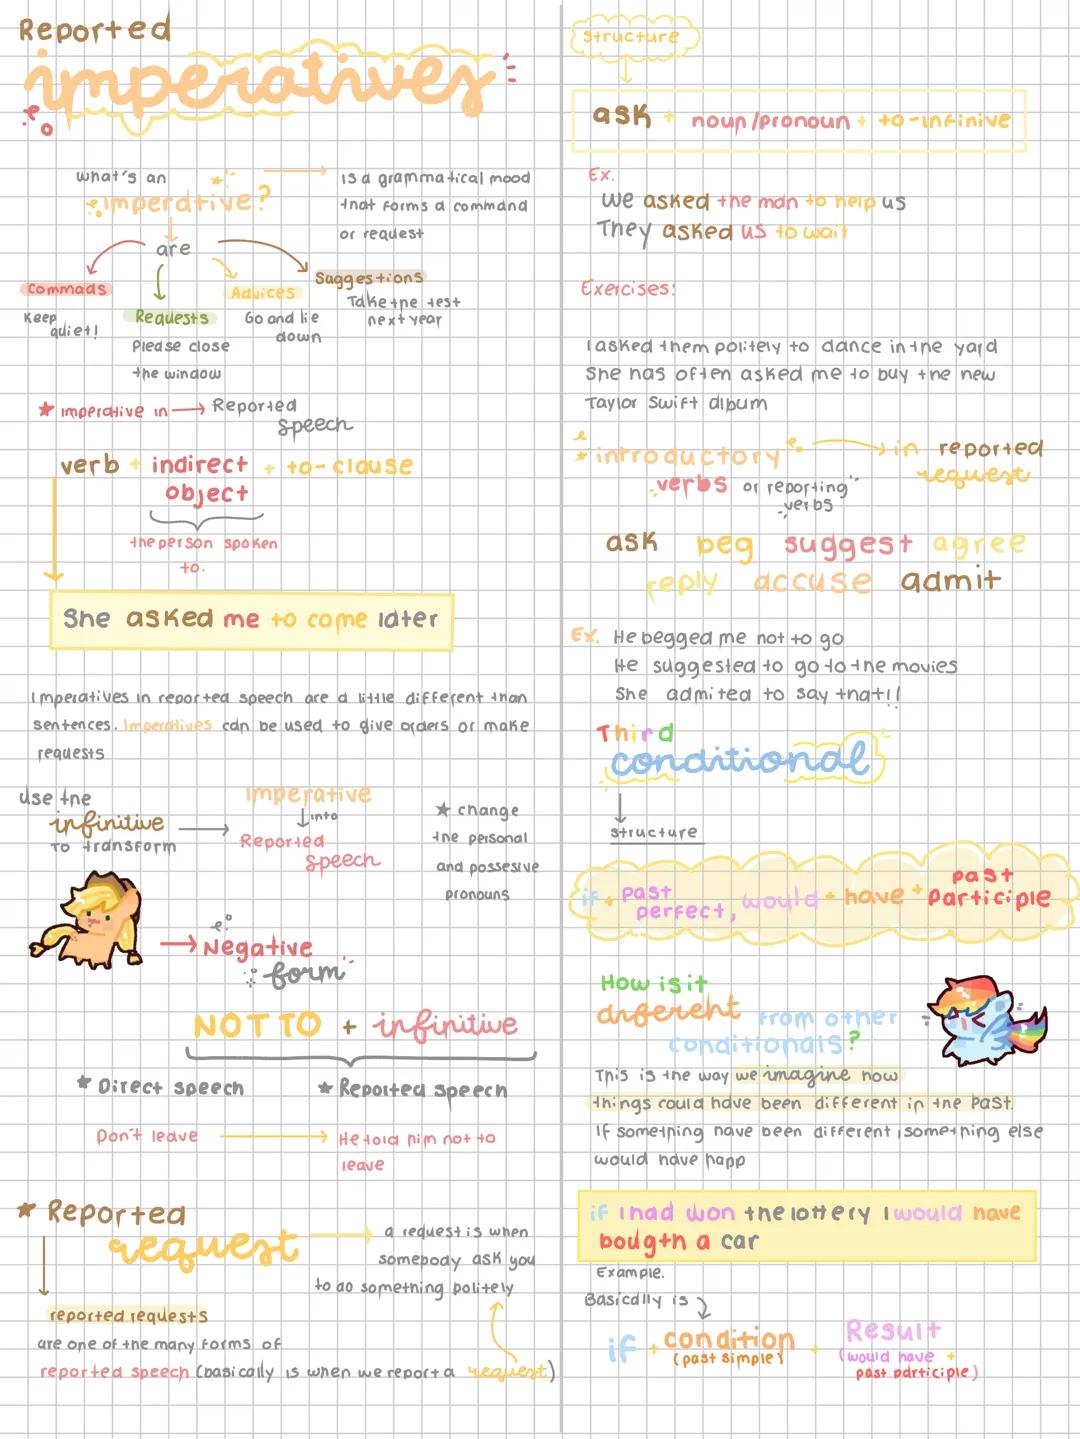 Reported
imperatives
what's an
imperative?
is a grammatical mood
that forms a command
or request
are
Commads
Keep
quiet!
Requests
Please close
the window
Advices
Go and lie
down
Suggestions
Take the test
next year
★ imperative in → Reported
speech
verb + indirect + to-clause
object
the person spoken
to.
She asked me to come later
Imperatives in reported speech are a little different than
sentences. Imperatives can be used to give orders or make
requests
use the
infinitive
TO transform
Imperative
into
Reported
speech
★ change
the personal
and possesive
pronouns
Negative
form
NOT TO + infinitive
★ Direct speech
★ Reported speech
Don't leave
He told him not to
leave
★ Reported
request
a request is when
somebody ask you
to do something politely
reported requests
are one of the many forms of
reported speech (basically is when we report a request)
structure
ask + noun/pronoun + to-infinive
Ex.
We asked the man to help us
They asked us to wait
Exercises:
I asked them politely to dance in the yard
She has often asked me to buy the new
Taylor Swift album
introductory
verbs or reporting
verbs
in reported
request
ask beg suggest agree
reply accuse admit
Ex. He begged me not to go
He suggested to go to the movies
She admited to say that!!
Third
conditional
structure
if + past
perfect, would + have + past
participle
How is it
different from other
conditionals?
This is the way we imagine how
things could have been different in the past.
If something have been different, something else
would have happ
if I had won the lottery I would have
bougth a car
Example.
Basically is
if + condition + Result
(past simple)
(would have +
past participle)